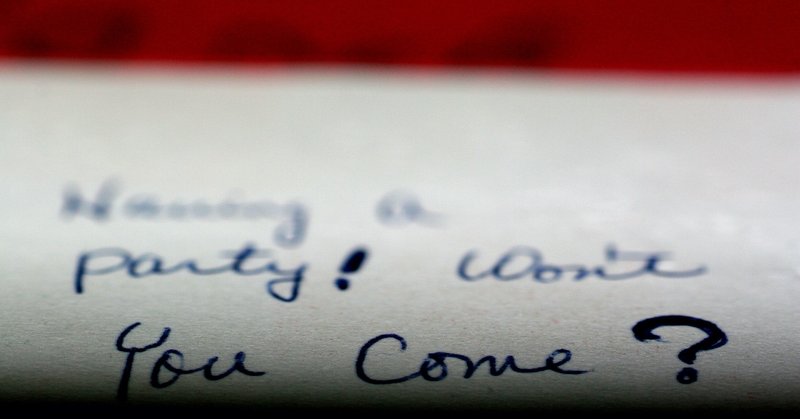 Having a
party! Won't
You Come?